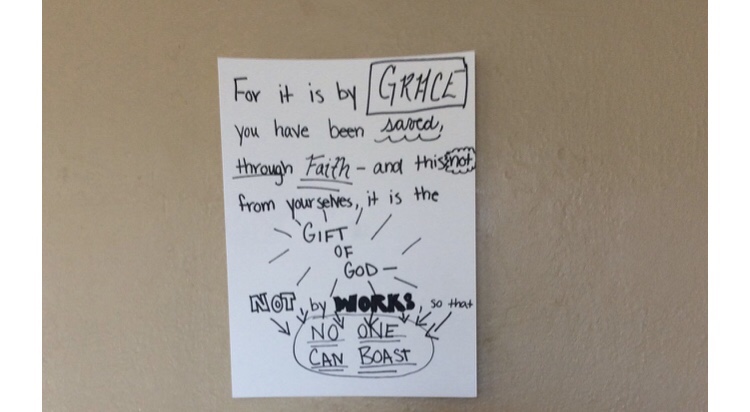 For it is by GRACE
you have been saved,
through Faith - and this not
from yourselves, it is the
GIFT
OF
GOD -
NOT by WORKS, so that
NO ONE
CAN BOAST